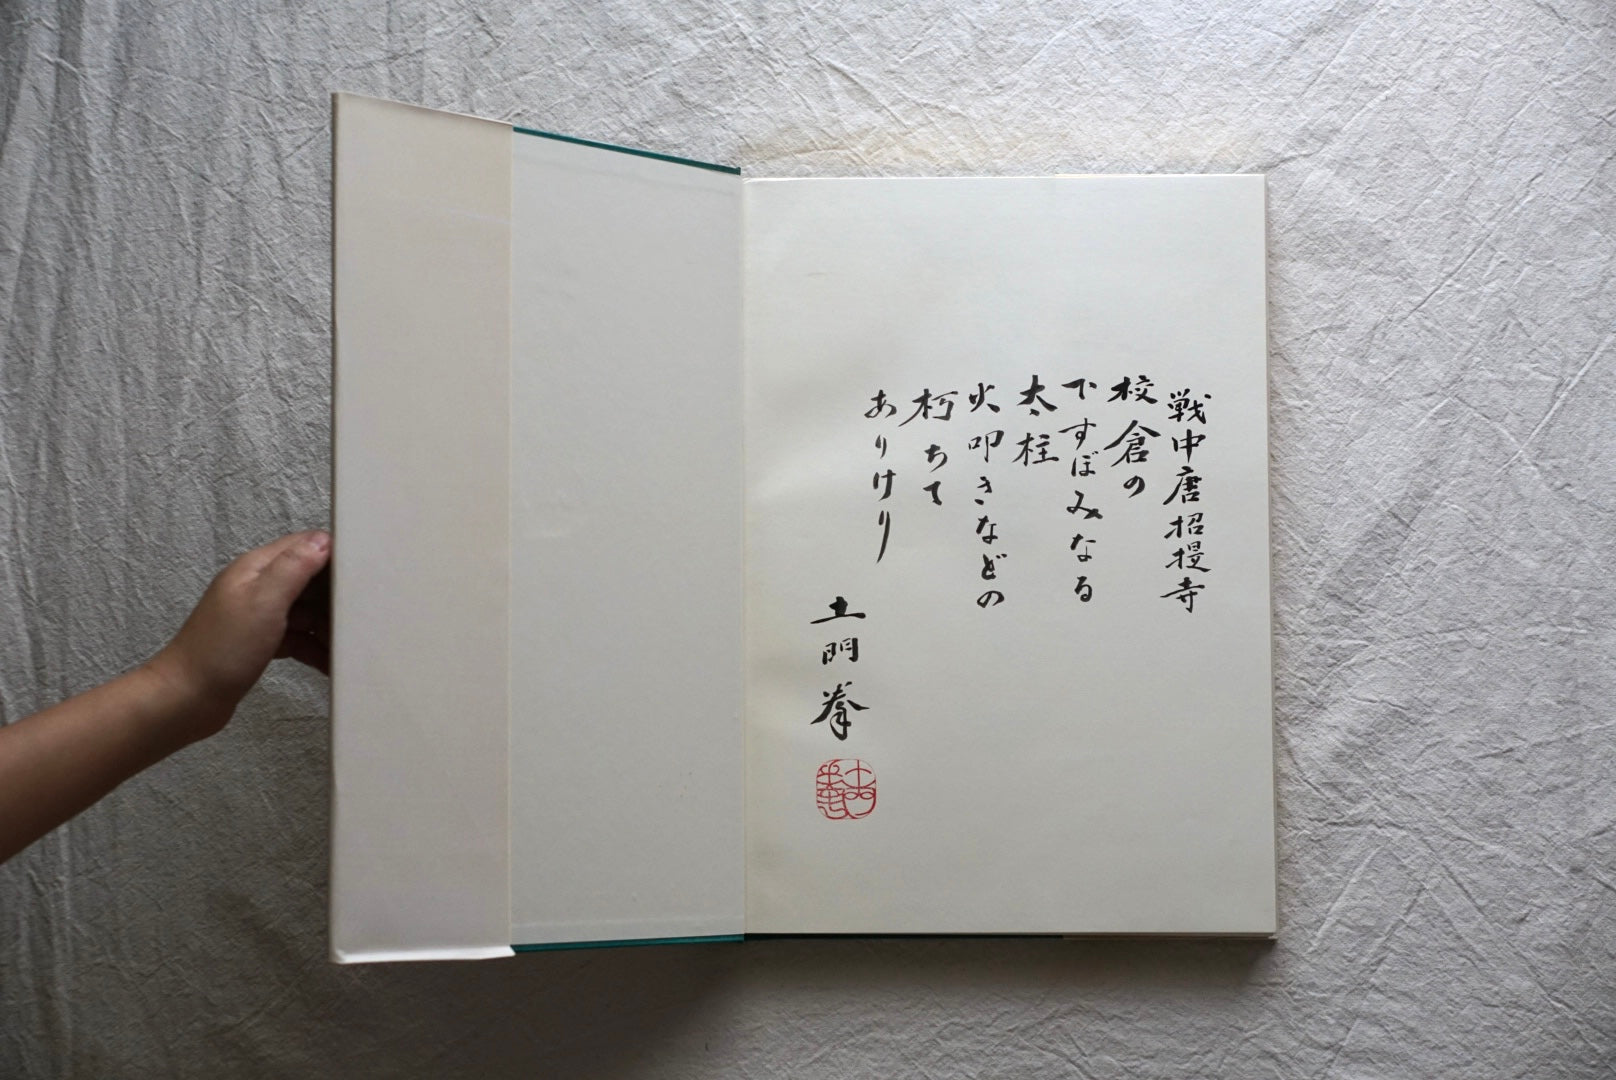 戦中唐招提寺
校倉の
下すぼみなる
太柱
火叩きなどの
朽ちて
ありけり
土門拳